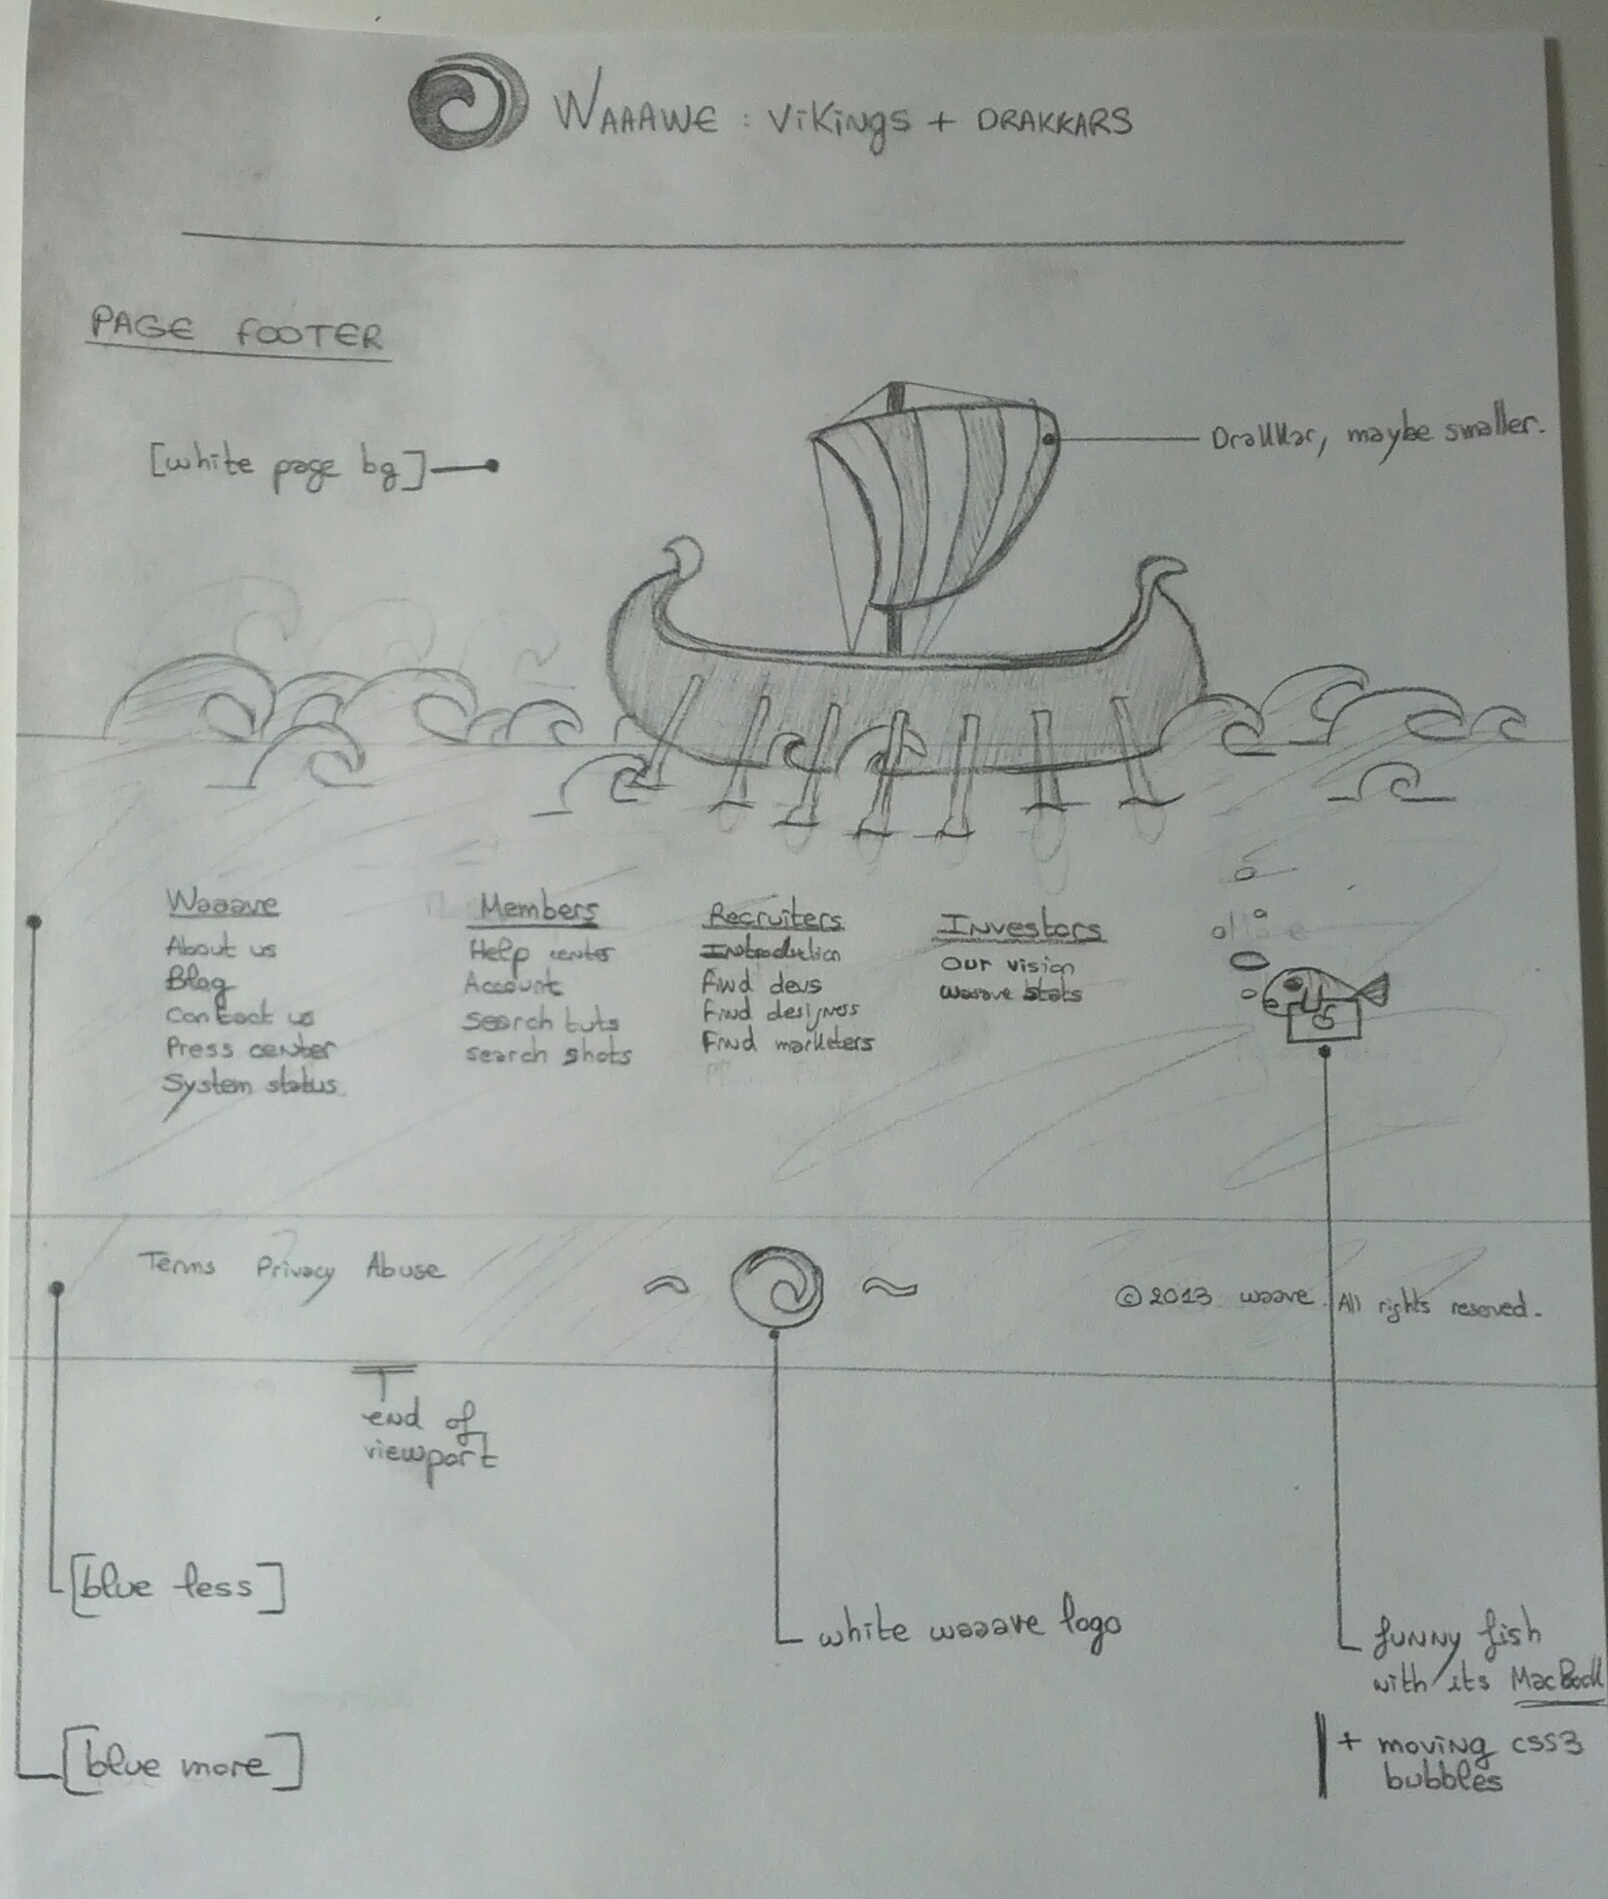 WAAAWE : ViKiNgS + DRAKKARS
PAGE FOOTER
[white page bg]
Drakkar, maybe smaller.
Waaave
About us
Blog
Contact us
Press center
System status
Members
Help center
Account
Search tuts
search shots
Recruiters
Introduction
find devs
Find designers
Find marketers
Investors
Our vision
waaave stats
Terms Privacy Abuse
© 2013 waave. All rights reserved.
end of
viewport
[blue less]
white waaave logo
funny fish
with its MacBook
+ moving css3
bubbles
[blue more]